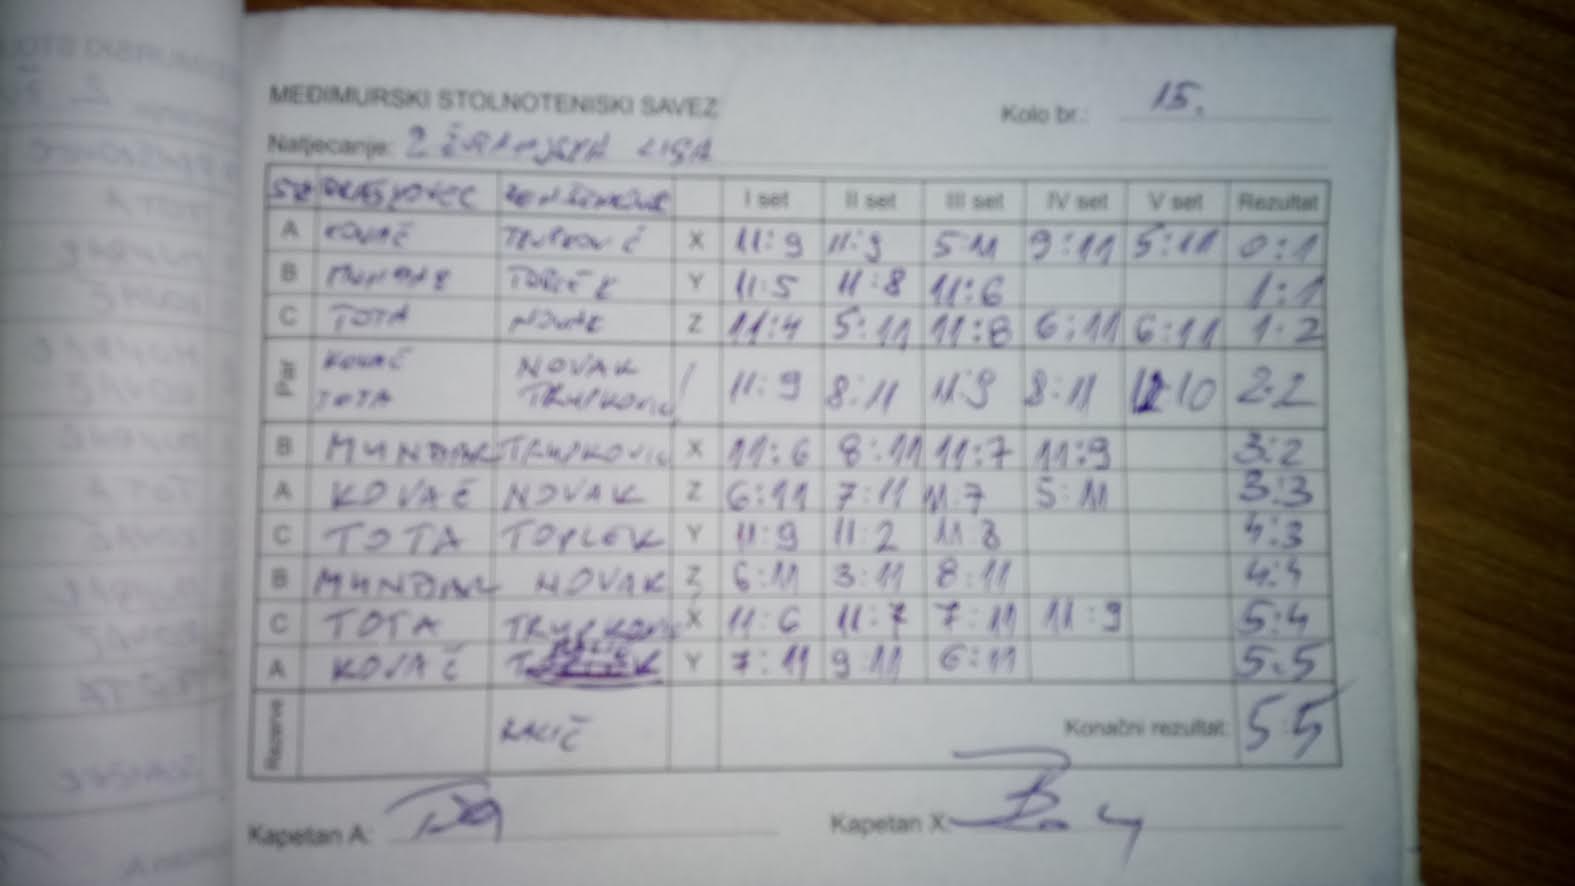 MEĐIMURSKI STOLNOTENISKI SAVEZ
Kolo br.: 15.
Natjecanje: 2 ŽUPANIJSKA LIGA
I set II set III set IV set V set Rezultat
A KOVAČ X 11:9 11:9 5:11 9:11 5:11 0:1
B Y 11:5 11:8 11:6 1:1
C TOTA NOVAK Z 11:4 5:11 11:8 6:11 6:11 1:2
Par KOVAČ TOTA NOVAK TRUPKOVIĆ 11:9 8:11 11:9 8:11 12:10 2:2
B MUNĐAR TRUPKOVIĆ X 11:6 8:11 11:7 11:9 3:2
A KOVAČ NOVAK Z 6:11 7:11 11:7 5:11 3:3
C TOTA TOPLEK Y 11:9 11:2 11:8 4:3
B MUNĐAR NOVAK Z 6:11 3:11 8:11 4:4
C TOTA X 11:6 11:7 7:11 11:9 5:4
A KOVAČ Y 7:11 9:11 6:11 5:5
Rezerve Konačni rezultat: 5:5
Kapetan A: Kapetan X: